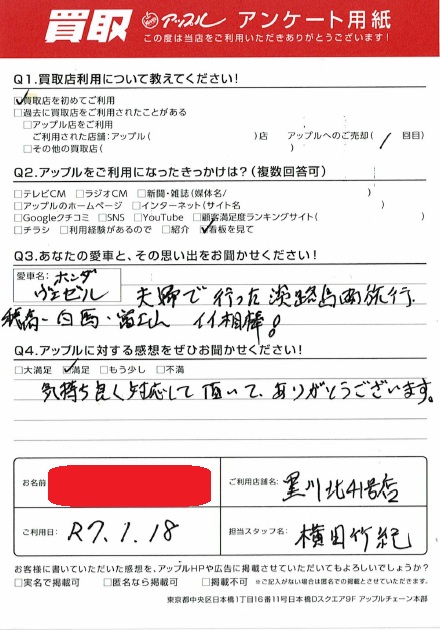 買取 アップル アンケート用紙
この度は当店をご利用いただきありがとうございます!
Q1.買取店利用について教えてください!
☑買取店を初めてご利用
□過去に買取店をご利用されたことがある
□アップル店をご利用
ご利用された店舗:アップル( )店 アップルへのご売却( / 回目)
□その他の買取店( )
Q2.アップルをご利用になったきっかけは?(複数回答可)
□テレビCM □ラジオCM □新聞・雑誌(媒体名/ )
□アップルのホームページ □インターネット(サイト名 )
□Googleクチコミ □SNS □YouTube □顧客満足度ランキングサイト( )
□チラシ □利用経験があるので □紹介 ☑看板を見て
Q3.あなたの愛車と、その思い出をお聞かせください!
愛車名: ホンダ
ヴェゼル 夫婦で行った淡路島西旅行.
穂高・白馬・富士山 イイ相棒!
Q4.アップルに対する感想をぜひお聞かせください!
□大満足 ☑満足 □もう少し □不満
気持ち良く対応して頂いて、ありがとうございます。
お名前
ご利用店舗名: 黒川北41号店
ご利用日: R7.1.18
担当スタッフ名: 横田竹紀
お客様に書いていただいた感想を、アップルHPや広告に掲載させていただいてもよろしいでしょうか?
□実名で掲載可 □匿名なら掲載可 □掲載不可 ※ご記入がない場合は匿名での掲載とさせていただきます。
東京都中央区日本橋1丁目16番11号日本橋Dスクエア9F アップルチェーン本部